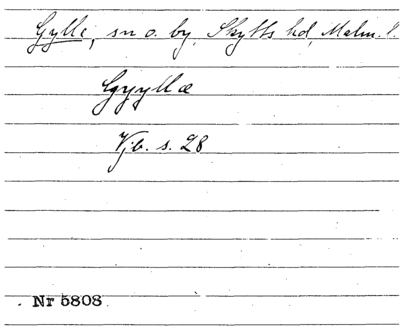 Gylle, sn o. by, Skytts hd, Malm. l.
Gyyllæ
Vjb. s. 28
Nr 5808